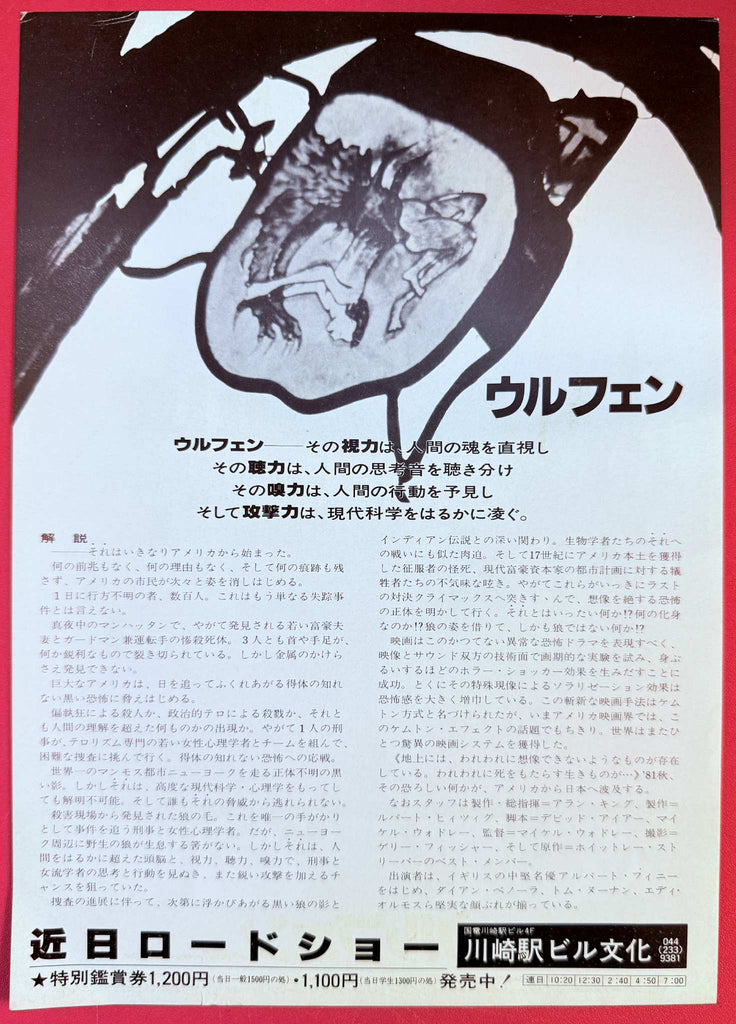 ウルフェン
ウルフェン――その視力は、人間の魂を直視し
その聴力は、人間の思考音を聴き分け
その嗅力は、人間の行動を予見し
そして攻撃力は、現代科学をはるかに凌ぐ。
解説
――それはいきなりアメリカから始まった。
何の前兆もなく、何の理由もなく、そして何の痕跡も残
さず、アメリカの市民が次々と姿を消しはじめる。
1日に行方不明の者、数百人。これはもう単なる失踪事
件とは言えない。
真夜中のマンハッタンで、やがて発見される若い富豪夫
妻とガードマン兼運転手の惨殺死体。3人とも首や手足が、
何か鋭利なもので裂き切られている。しかし金属のかけら
さえ発見できない。
巨大なアメリカは、日を追ってふくれあがる得体の知れ
ない黒い恐怖に脅えはじめる。
偏執狂による殺人か、政治的テロによる殺戮か、それと
も人間の理解を超えた何ものかの出現か。やがて1人の刑
事が、テロリズム専門の若い女性心理学者とチームを組んで、
困難な捜査に挑んで行く。得体の知れない恐怖への応戦。
世界一のマンモス都市ニューヨークを走る正体不明の黒
い影。しかしそれは、高度な現代科学・心理学をもってし
ても解明不可能。そして誰もそれの脅威から逃れられない。
殺害現場から発見された狼の毛。これを唯一の手がかり
として事件を追う刑事と女性心理学者。だが、ニューヨー
ク周辺に野生の狼が生息する筈がない。しかしそれは、人
間をはるかに超えた頭脳と、視力、聴力、嗅力で、刑事と
女流学者の思考と行動を見ぬき、また鋭い攻撃を加えるチ
ャンスを狙っていた。
捜査の進展に伴って、次第に浮かびあがる黒い狼の影と
インディアン伝説との深い関わり。生物学者たちのそれへ
の戦いにも似た肉迫。そして17世紀にアメリカ本土を獲得
した征服者の怪死、現代富豪資本家の都市計画に対する犠
牲者たちの不気味な呟き。やがてこれらがいっきにラスト
の対決クライマックスへ突きすゝんで、想像を絶する恐怖
の正体を明かして行く。それとはいったい何か!?何の化身
なのか!?狼の姿を借りて、しかも狼ではない何か!?
映画はこのかつてない異常な恐怖ドラマを表現すべく、
映像とサウンド双方の技術面で画期的な実験を試み、身ぶ
るいするほどのホラー・ショッカー効果を生みだすことに
成功。とくにその特殊現像によるソラリゼーション効果は
恐怖感を大きく増巾している。この斬新な映画手法はケム
トン方式と名づけられたが、いまアメリカ映画界では、こ
のケムトン・エフェクトの話題でもちきり。世界はまたひ
とつ驚異の映画システムを獲得した。
《地上には、われわれに想像できないようなものが存在
している。われわれに死をもたらす生きものが…》'81秋、
その恐ろしい何かが、アメリカから日本へ波及する。
なおスタッフは製作・総指揮=アラン・キング、製作=
ルパート・ヒィツィグ、脚本=デビッド・アイアー、マイ
ケル・ウォドレー、監督=マイケル・ウォドレー、撮影=
ゲリー・フィッシャー、そして原作=ホイットレー・スト
リーバーのベスト・メンバー。
出演者は、イギリスの中堅名優アルバート・フィニー
をはじめ、ダイアン・ベノーラ、トム・ヌーナン、エディ・
オルモスら堅実な顔ぶれが揃っている。
近日ロードショー
国電川崎駅ビル4F
川崎駅ビル文化
044
(233)
9381
★特別鑑賞券1,200円(当日一般1500円の処)・1,100円(当日学生1300円の処)発売中!
連日 10:20 12:30 2:40 4:50 7:00